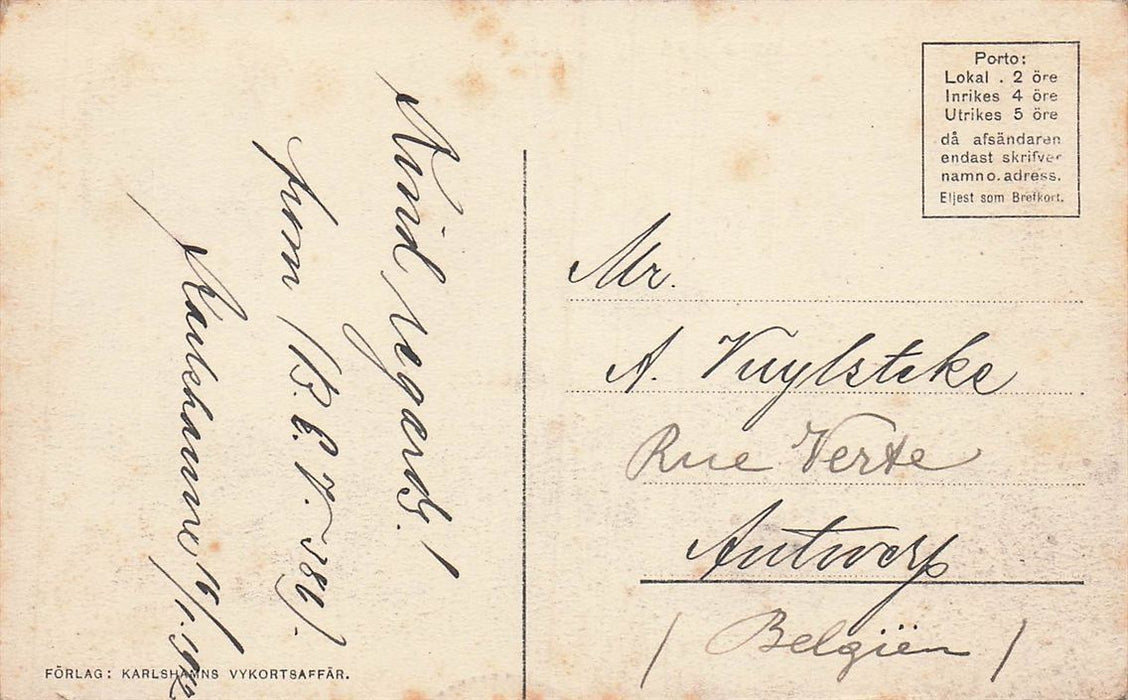 Kind regards!
from (B. C. V. 384).
Karlshamn 16/1. 1902
Porto:
Lokal . 2 öre
Inrikes 4 öre
Utrikes 5 öre
då afsändaren
endast skrifver
namn o. adress.
Eljest som Brefkort.
Mr.
A. Vuylsteke
Rue Verte
Antwerp
(Belgiën)
FÖRLAG: KARLSHAMNS VYKORTSAFFÄR.